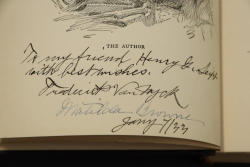 THE AUTHOR
To my friend Henry G.
with best wishes.
Frederick Van Wyck
Matilda Browne
Jany 7/33